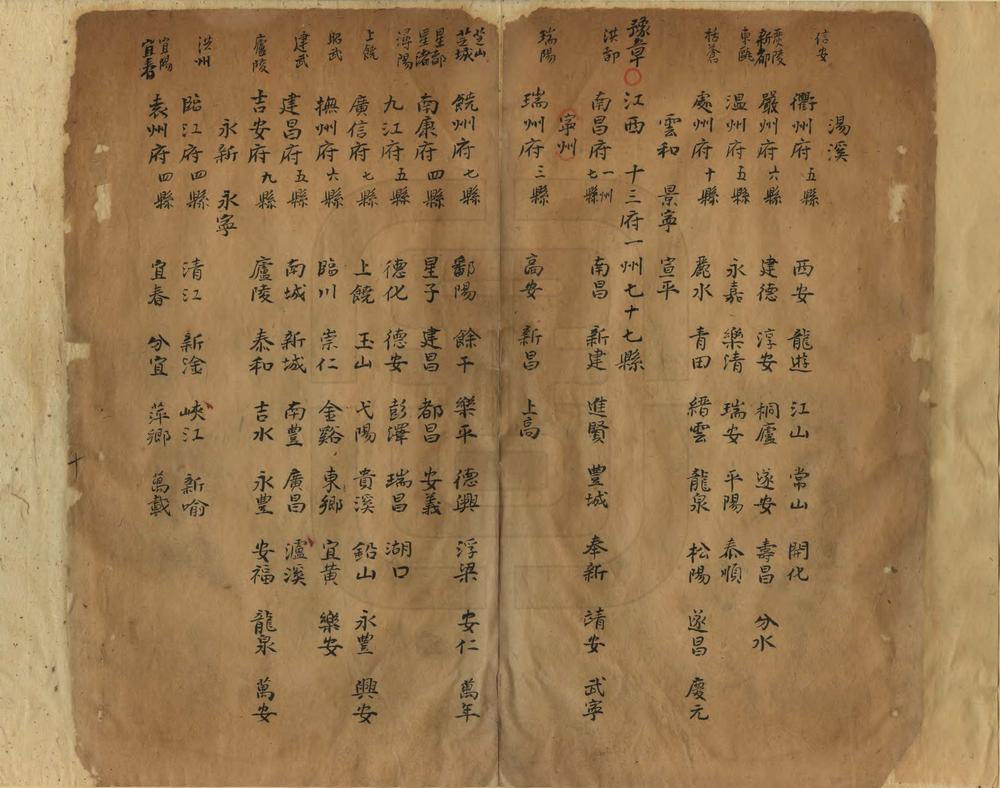 湯溪
信安 衢州府五縣 西安 龍遊 江山 常山 開化
廣陵 新都 嚴州府六縣 建德 淳安 桐廬 遂安 壽昌 分水
東甌 温州府五縣 永嘉 樂清 瑞安 平陽 泰順
括蒼 處州府十縣 麗水 青田 縉雲 龍泉 松陽 遂昌 慶元
雲和 景寧 宣平
豫章 江西 十三府一州七十七縣
洪都 南昌府一州七縣 南昌 新建 進賢 豐城 奉新 靖安 武寧
寧州
瑞陽 瑞州府三縣 高安 新昌 上高
芝山 芝城 饒州府七縣 鄱陽 餘干 樂平 德興 浮梁 安仁 萬年
星都 星渚 南康府四縣 星子 建昌 都昌 安義
潯陽 九江府五縣 德化 德安 彭澤 瑞昌 湖口
上饒 廣信府七縣 上饒 玉山 弋陽 貴溪 鉛山 永豐 興安
昭武 撫州府六縣 臨川 崇仁 金谿 東鄉 宜黃 樂安
建武 建昌府五縣 南城 新城 南豐 廣昌 瀘溪
廬陵 吉安府九縣 廬陵 泰和 吉水 永豐 安福 龍泉 萬安
永新 永寧
洪州 臨江府四縣 清江 新淦 峽江 新喻
宜陽 宜春 袁州府四縣 宜春 分宜 萍鄉 萬載